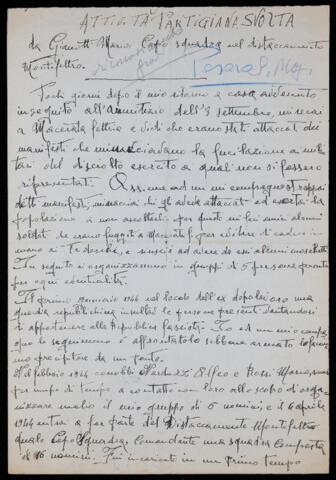 ATTIVITÀ PARTIGIANA SVOLTA
da Gianotti Mario Capo squadra nel distaccamento
Montefeltro.
Pesaro
Pochi giorni dopo il mio ritorno a casa avvenuto
in seguito all'armistizio dell'8 settembre, mi recai
a Macerata Feltria e vidi che erano stati attaccati dei
manifesti che minacciavano la fucilazione a mili
tari del disciolto esercito a quali non si fossero
ripresentati. Assieme ad un mio compagno strappai
detti manifesti, minacciai chi gli aveva attaccati ed esortai la
popolazione a non ascoltarli per questo mi feci amici alcuni
soldati che erano fuggiti a Macerata F. per evitare di cadere in
mano ai Tedeschi, e riuscii ad avere da essi alcuni moschetti
In seguito ci organizzammo in gruppi di 5 persone pronte
per ogni eventualità.
Il primo Gennaio 1944 nel locale dell'ex dopolavoro una
guardia repubblichina insultò le persone presenti vantandosi
di appartenere alla Repubblica fascista. Io ed un mio compa
gno lo seguimmo e affrontatolo sebbene armato lo facem
mo precipitare da un ponte.
Nel febbraio 1944 conobbi Effeo e Rossi Mario, rimasi
per lungo tempo a contatto con loro allo scopo d'orga
nizzare meglio il mio gruppo di 6 uomini, e il 6 aprile
1944 entrai a far parte del Distaccamento Montefeltro
quale Capo Squadra, Comandante una squadra composta
di 16 uomini. Fui incaricato in un primo tempo